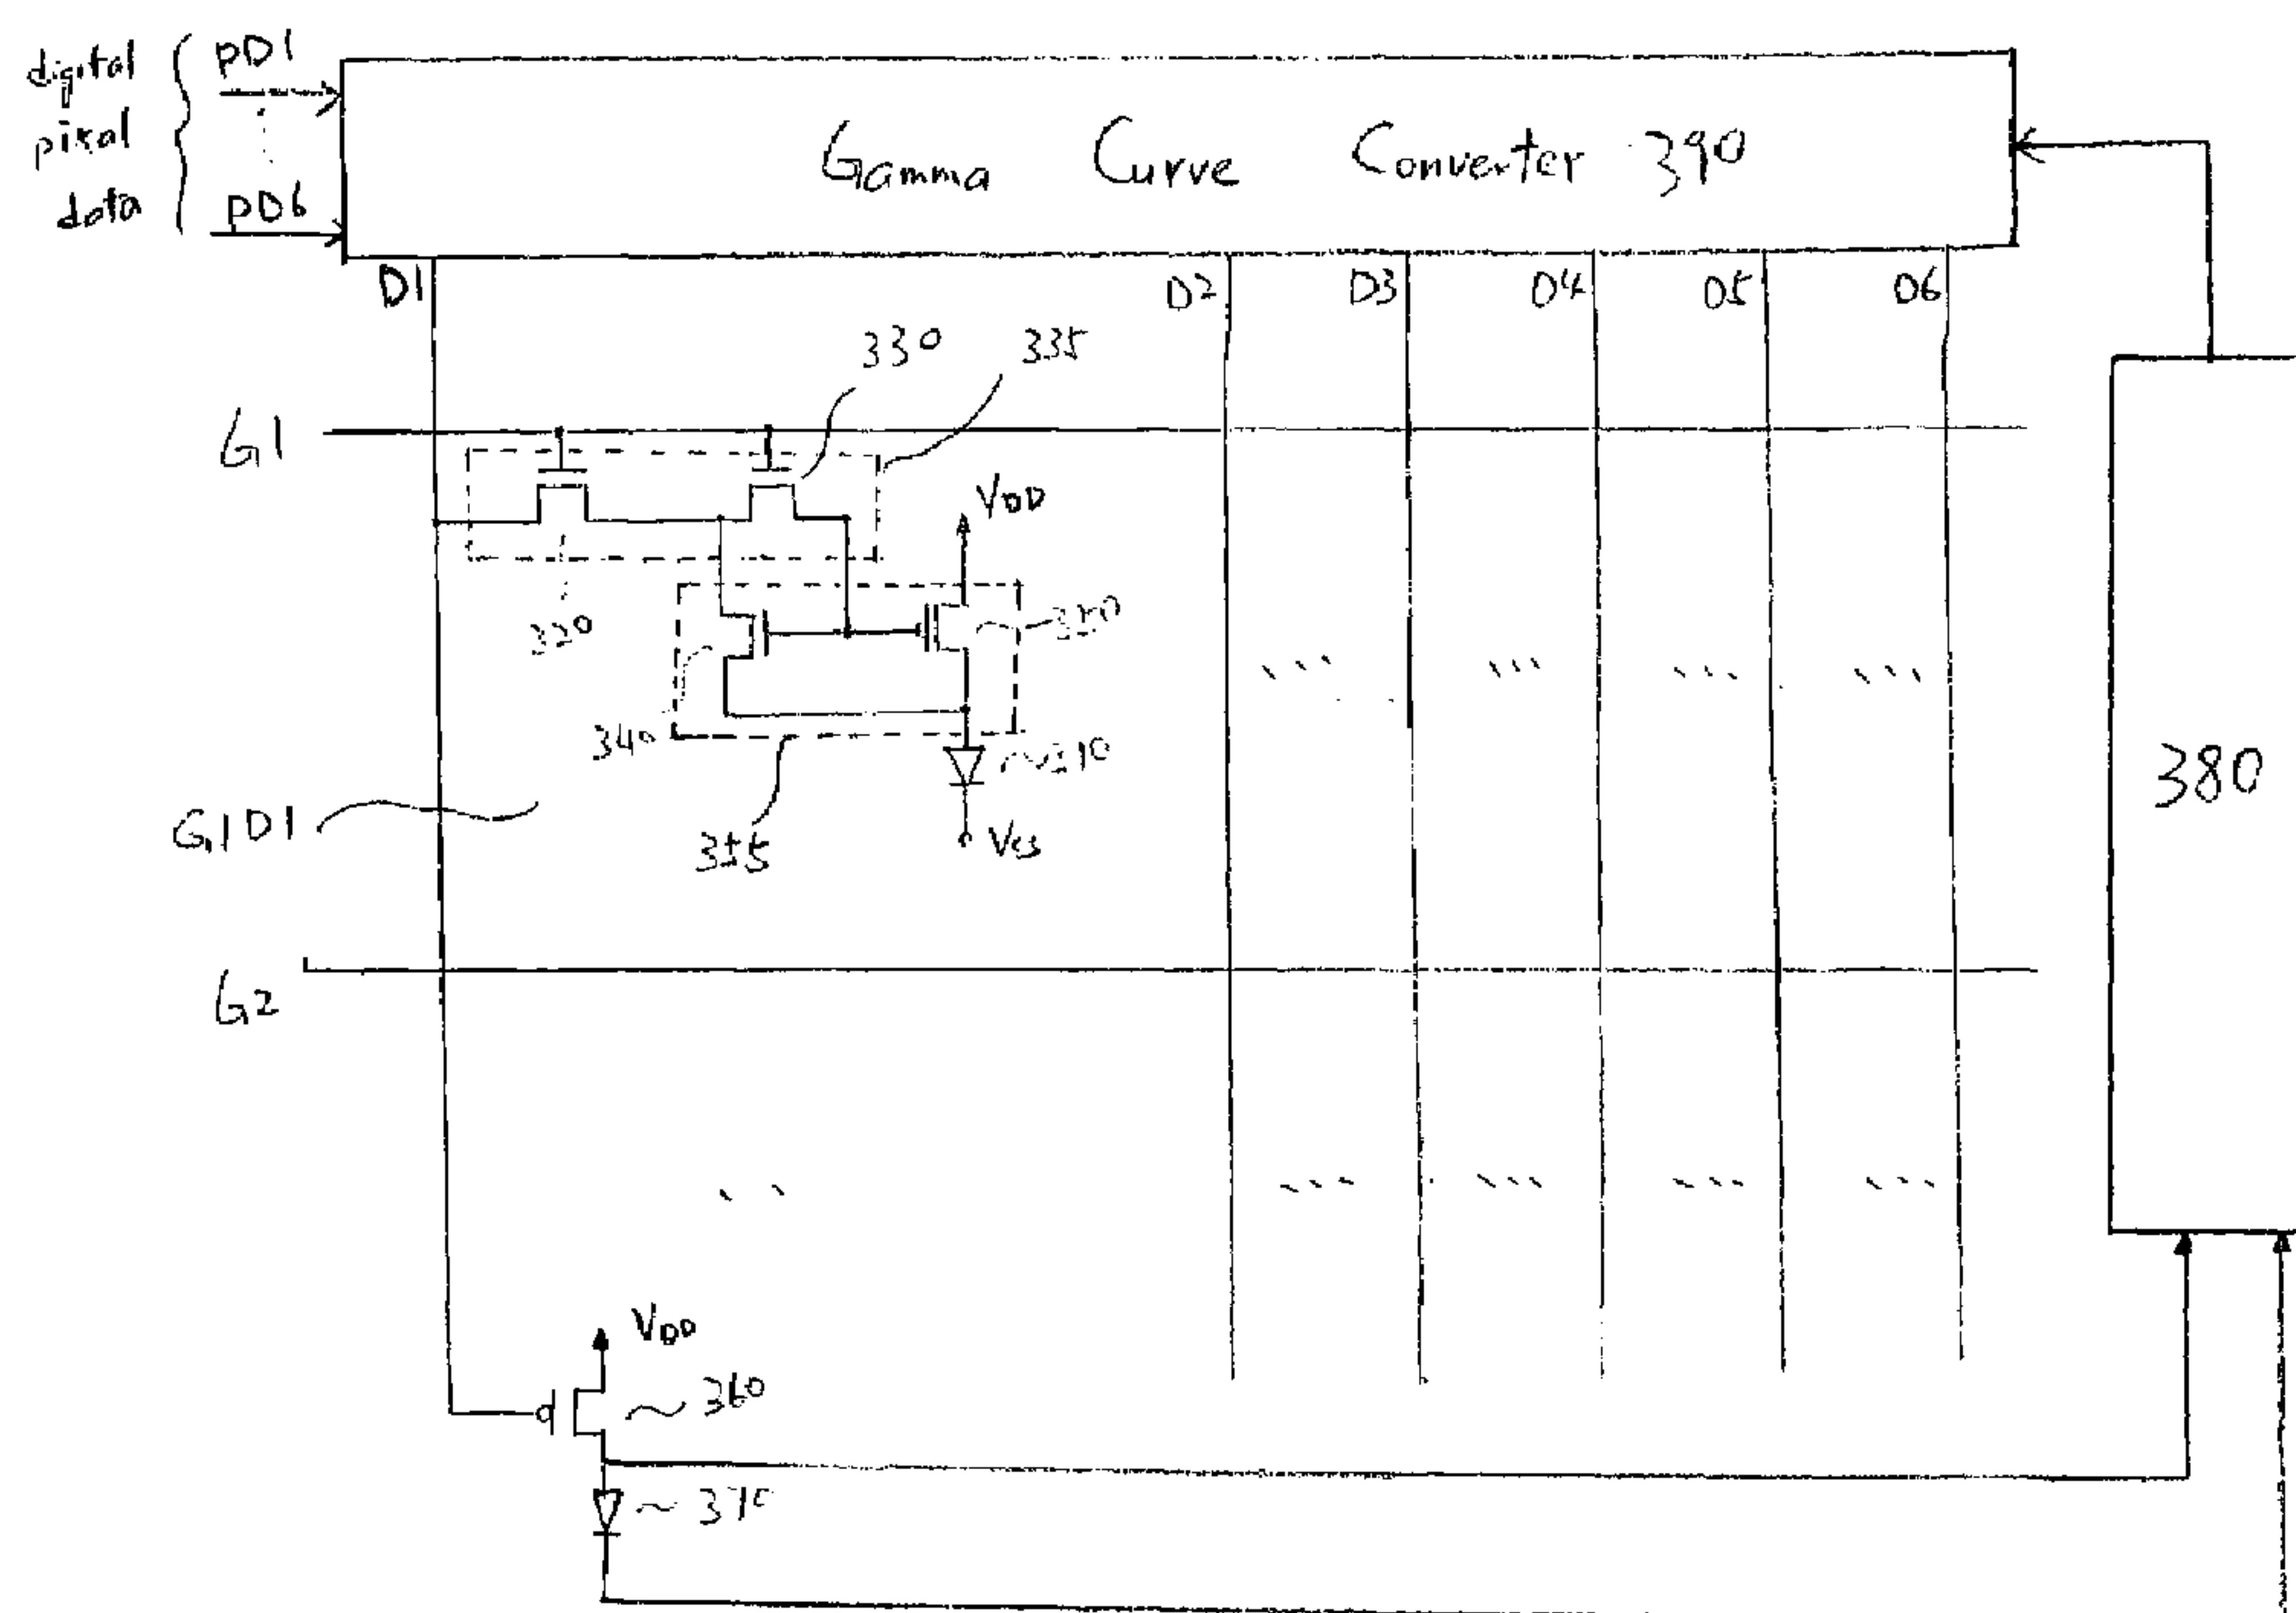 digital
pixal
data
PD1
PD6
Gamma Curve Converter 390
D1
D2
D3
D4
D5
D6
330
335
G1
VDD
320
350
340
310
355
Vss
G1D1
380
G2
VDD
360
370